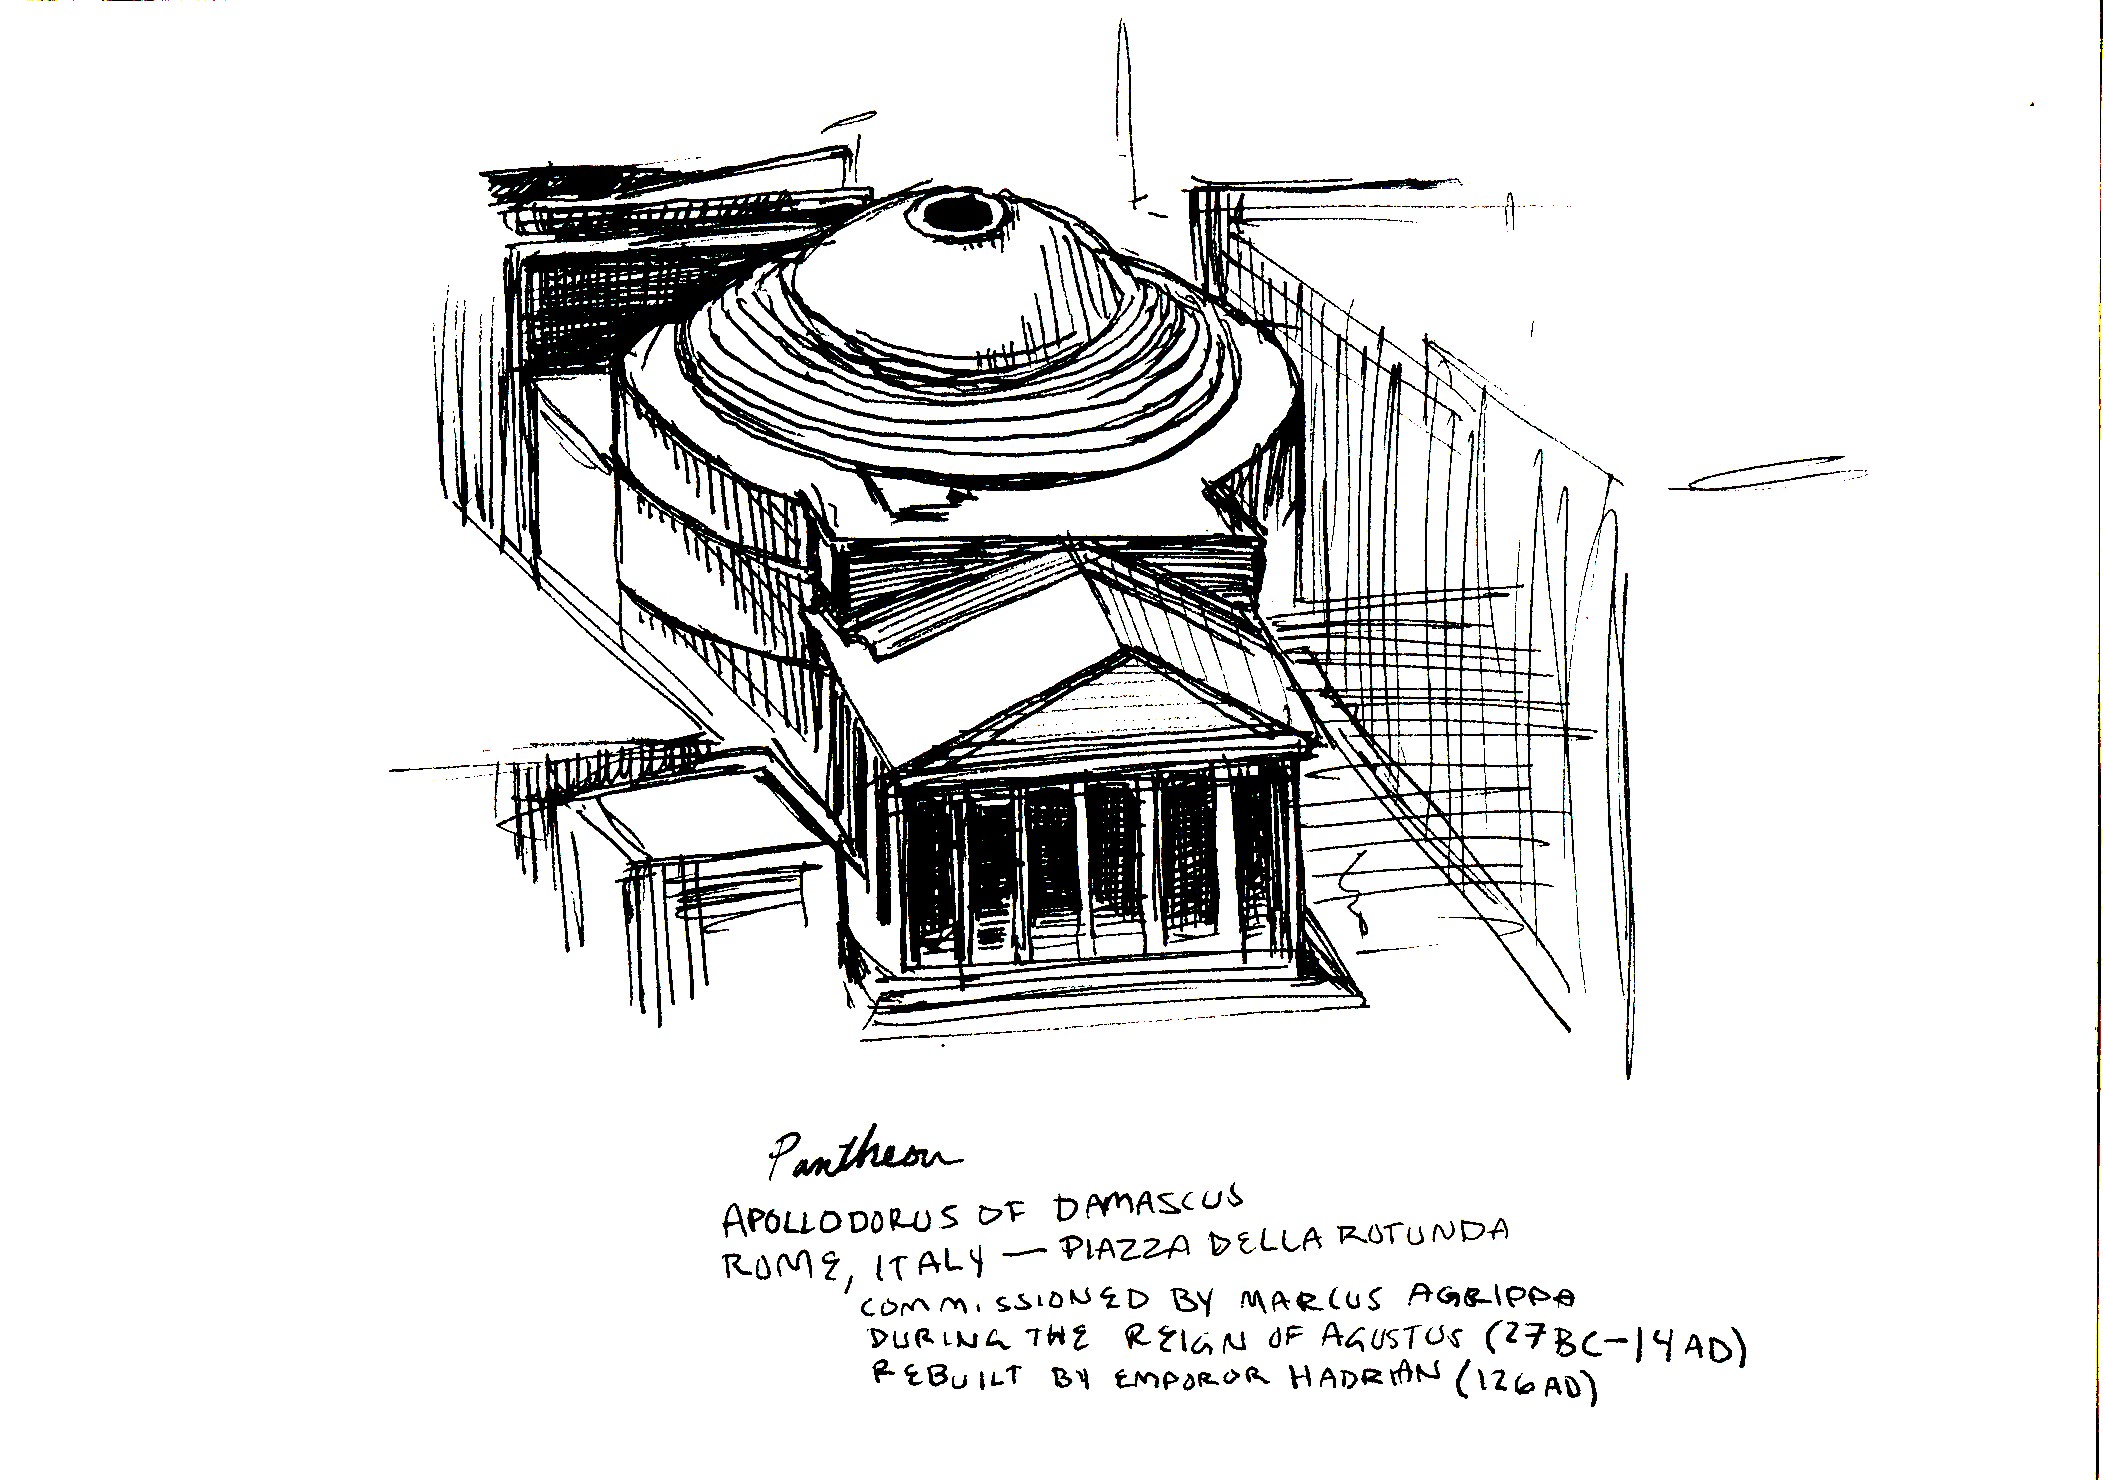 Pantheon
APOLLODORUS OF DAMASCUS
ROME, ITALY — PIAZZA DELLA ROTUNDA
COMMISSIONED BY MARCUS AGRIPPA
DURING THE REIGN OF AGUSTUS (27BC-14AD)
REBUILT BY EMPOROR HADRIAN (126AD)